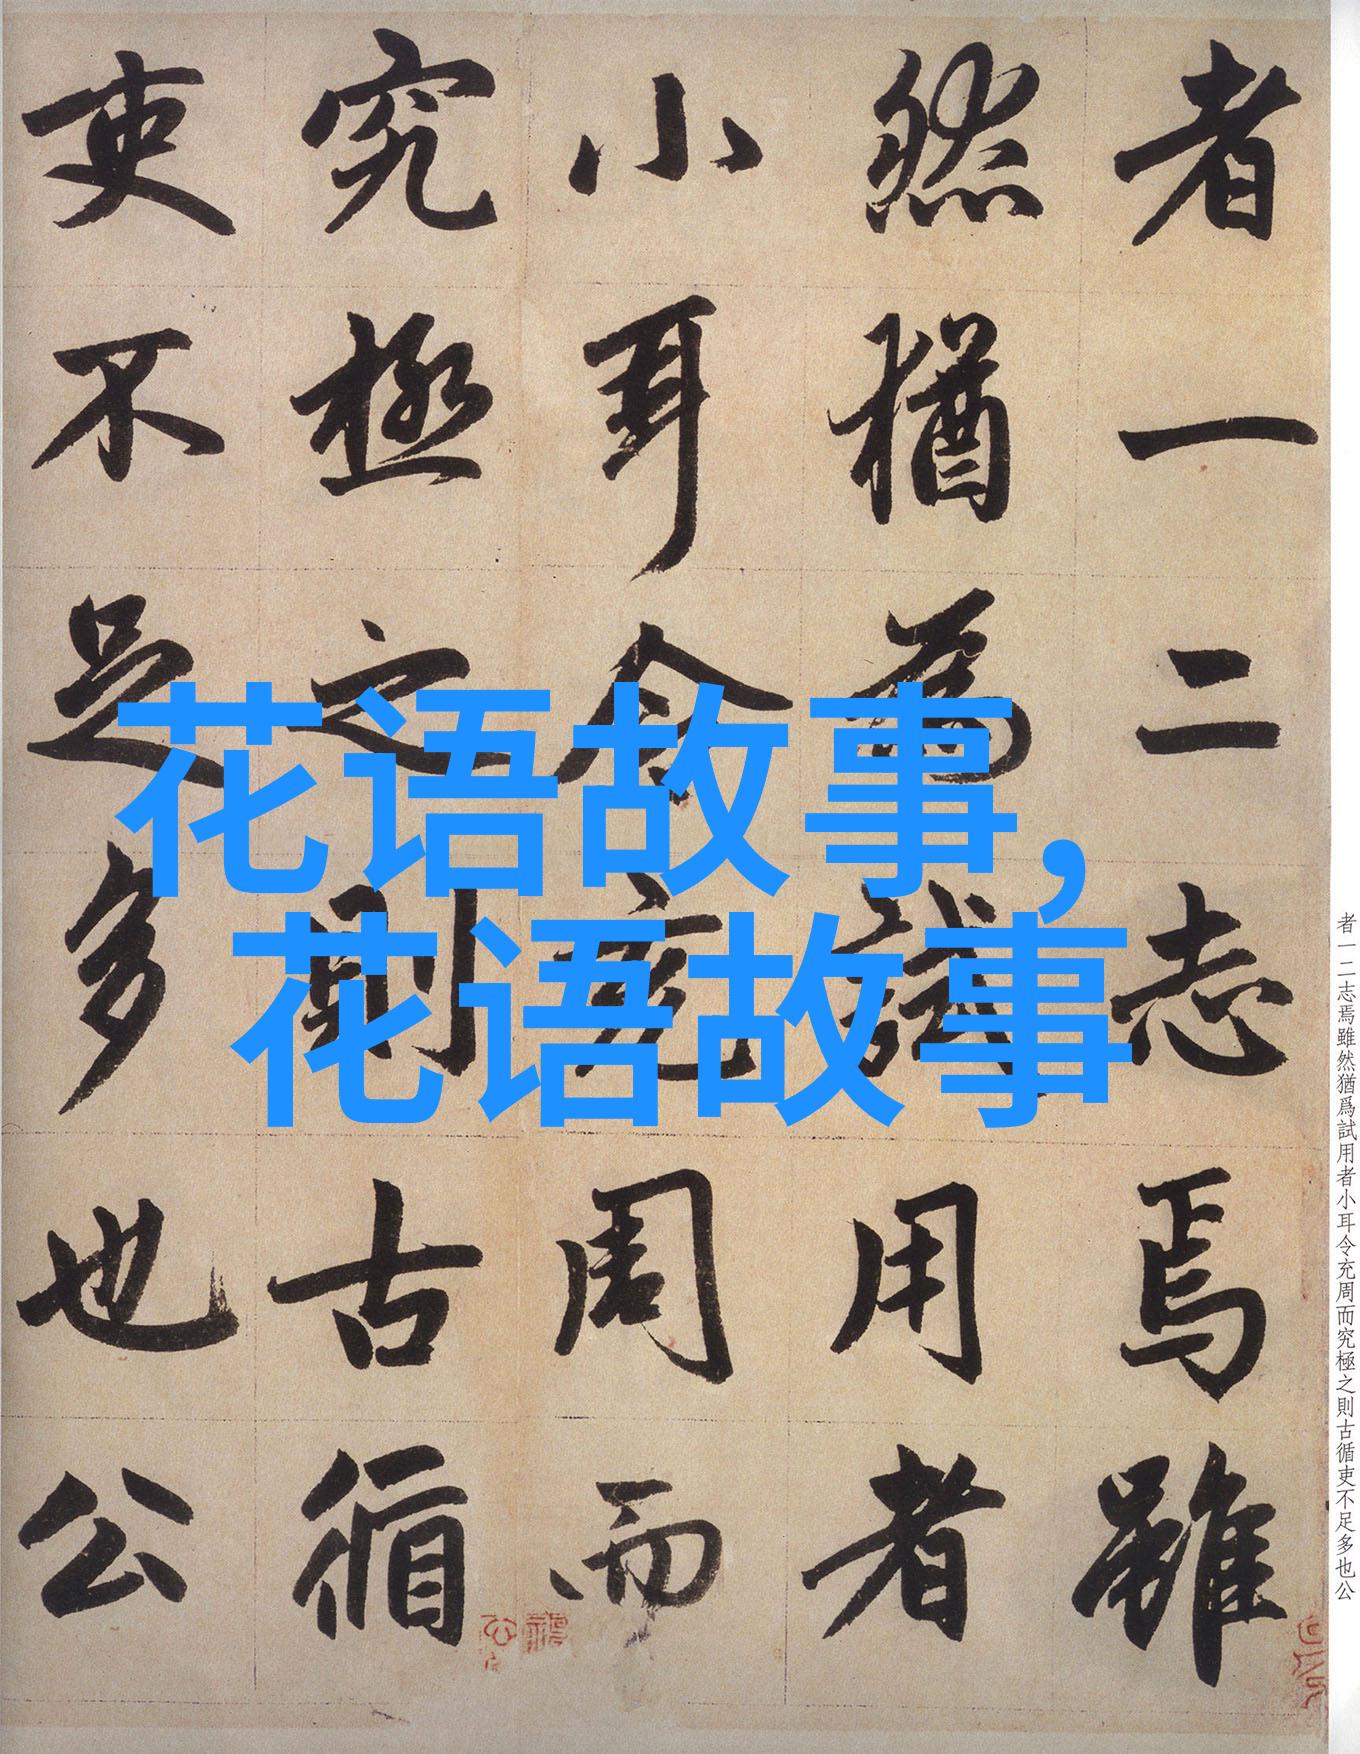 者一二志焉雖
然猶為試用者
小耳令充周而
究極之則古循
吏不足多也公
花语故事,
花语故事
者一二志焉雖然猶爲試用者小耳令充周而究極之則古循吏不足多也公